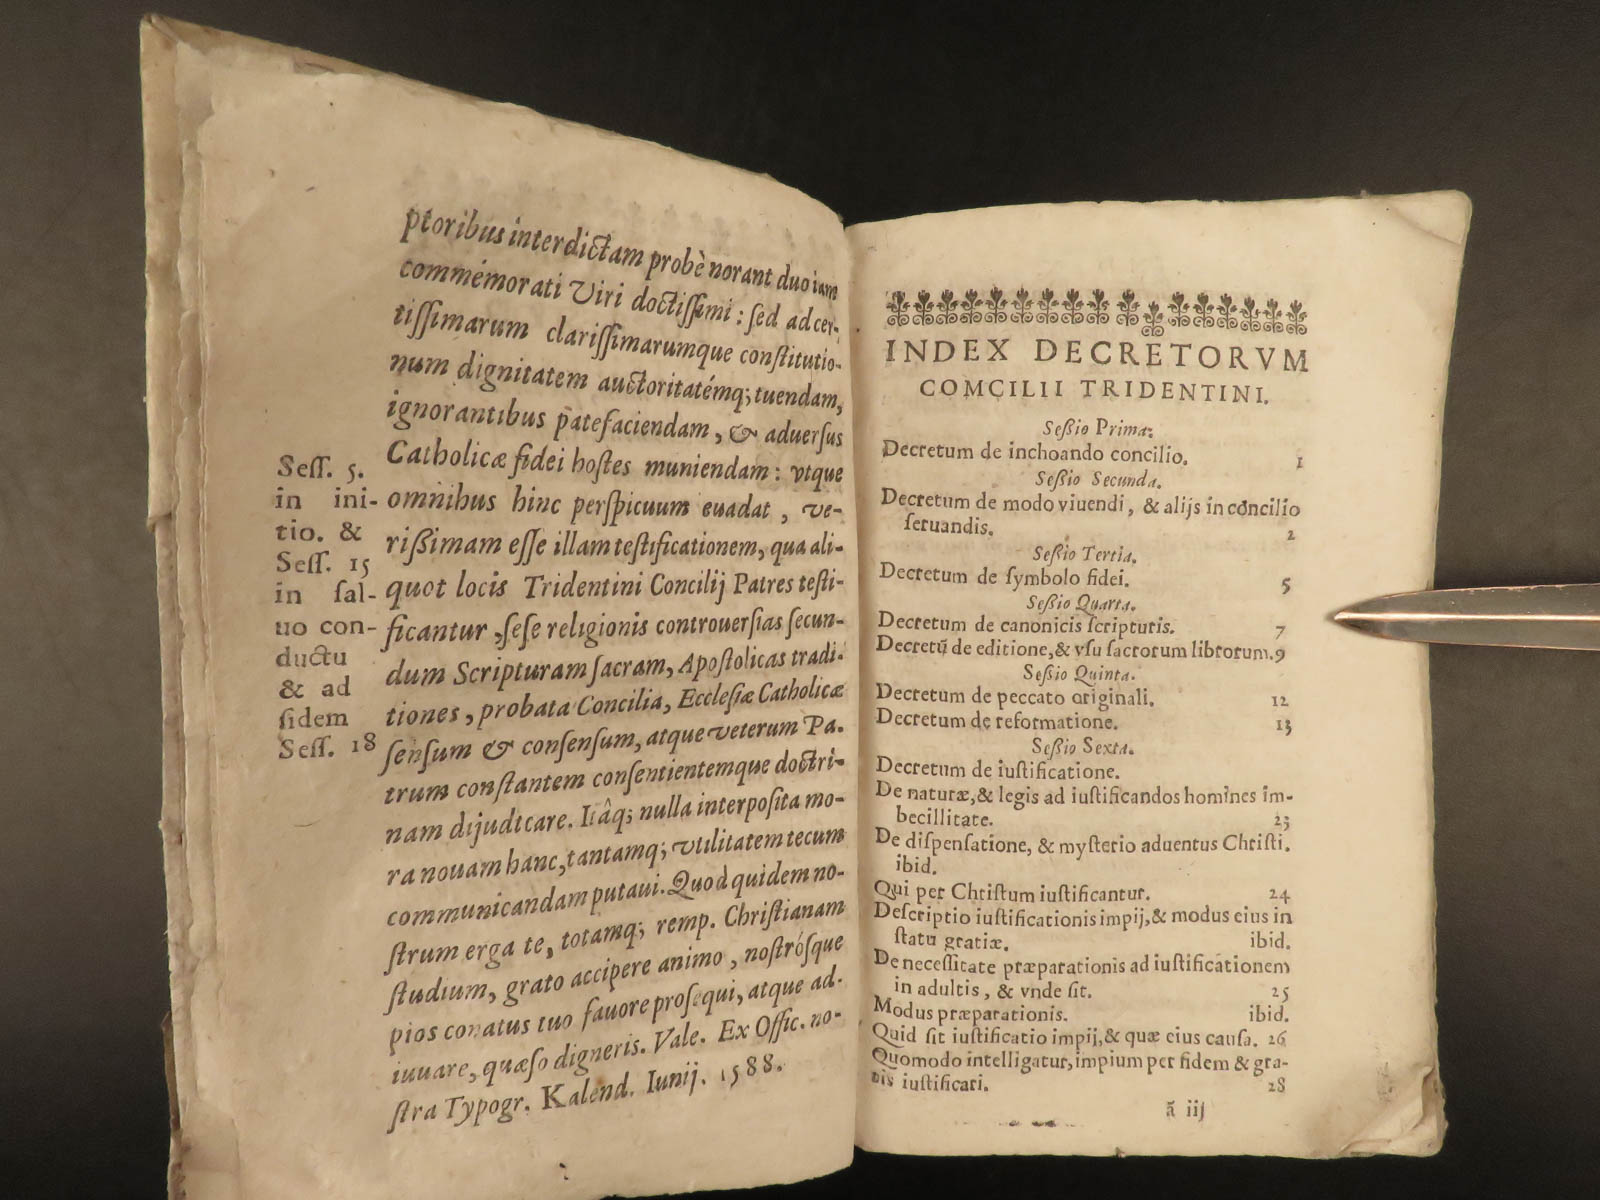 ptoribus interdictam probè norant duo iam
commémorati Viri doctissimi: sed ad cer-
tissimarum clarissimarumque constitutio-
num dignitatem auctoritatémq; tuendam,
ignorantibus patefaciendam, & aduersus
Catholicæ fidei hostes muniendam: vtque
omnibus hinc perspicuum euadat, ve-
rißimam esse illam testificationem, qua ali-
quot locis Tridentini Concilij Patres testi-
ficantur, sese religionis controuersias secun-
dum Scripturam sacram, Apostolicas tradi-
tiones, probata Concilia, Ecclesiæ Catholicæ
sensum & consensum, atque veterum Pa-
trum constantem consentientemque doctri-
nam dijudicare. Itâq; nulla interposita mo-
ra nouam hanc, tantamq; vtilitatem tecum
communicandam putaui. Quod quidem no-
strum erga te, totamq; remp. Christianam
studium, grato accipere animo, nostrósque
pios conatus tuo fauore prosequi, atque ad-
iuuare, quæso digneris. Vale. Ex Offic. no-
stra Typogr. Kalend. Iunij. 1588.
Sess. 5.
in ini-
tio. &
Sess. 15
in sal-
uo con-
ductu
& ad
fidem
Sess. 18
INDEX DECRETORVM
COMCILII TRIDENTINI.
Seßio Prima:
Decretum de inchoando concilio. 1
Seßio Secunda.
Decretum de modo viuendi, & alijs in concilio
seruandis. 2
Seßio Tertia.
Decretum de symbolo fidei. 5
Seßio Quarta.
Decretum de canonicis scripturis. 7
Decretū de editione, & vsu sacrorum librorum. 9
Seßio Quinta.
Decretum de peccato originali. 12
Decretum de reformatione. 13
Seßio Sexta.
Decretum de iustificatione.
De naturæ, & legis ad iustificandos homines im-
becillitate. 23
De dispensatione, & mysterio aduentus Christi.
ibid.
Qui per Christum iustificantur. 24
Descriptio iustificationis impij, & modus eius in
statu gratiæ. ibid.
De necessitate præparationis ad iustificationem
in adultis, & vnde sit. 25
Modus præparationis. ibid.
Quid sit iustificatio impij, & quæ eius causa. 26
Quomodo intelligatur, impium per fidem & gra-
tis iustificari. 28
ã iij